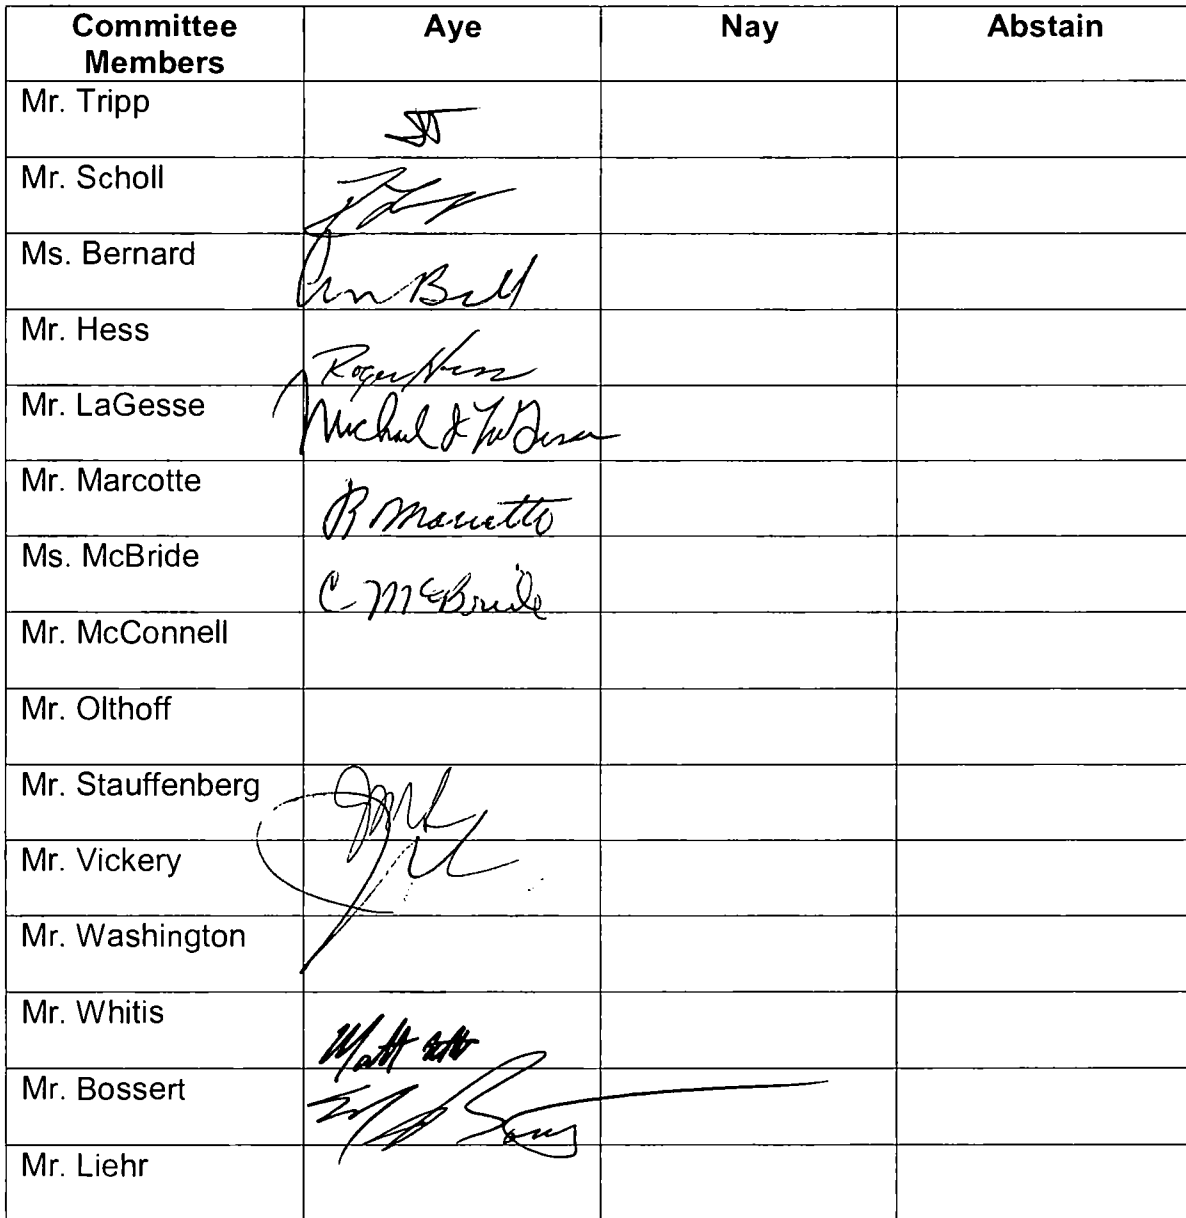 Committee Members Aye Nay Abstain
Mr. Tripp
Mr. Scholl
Ms. Bernard
Mr. Hess Roger Hess
Mr. LaGesse Michael J LaGesse
Mr. Marcotte R Marcotte
Ms. McBride C. McBride
Mr. McConnell
Mr. Olthoff
Mr. Stauffenberg
Mr. Vickery
Mr. Washington
Mr. Whitis Matt
Mr. Bossert
Mr. Liehr